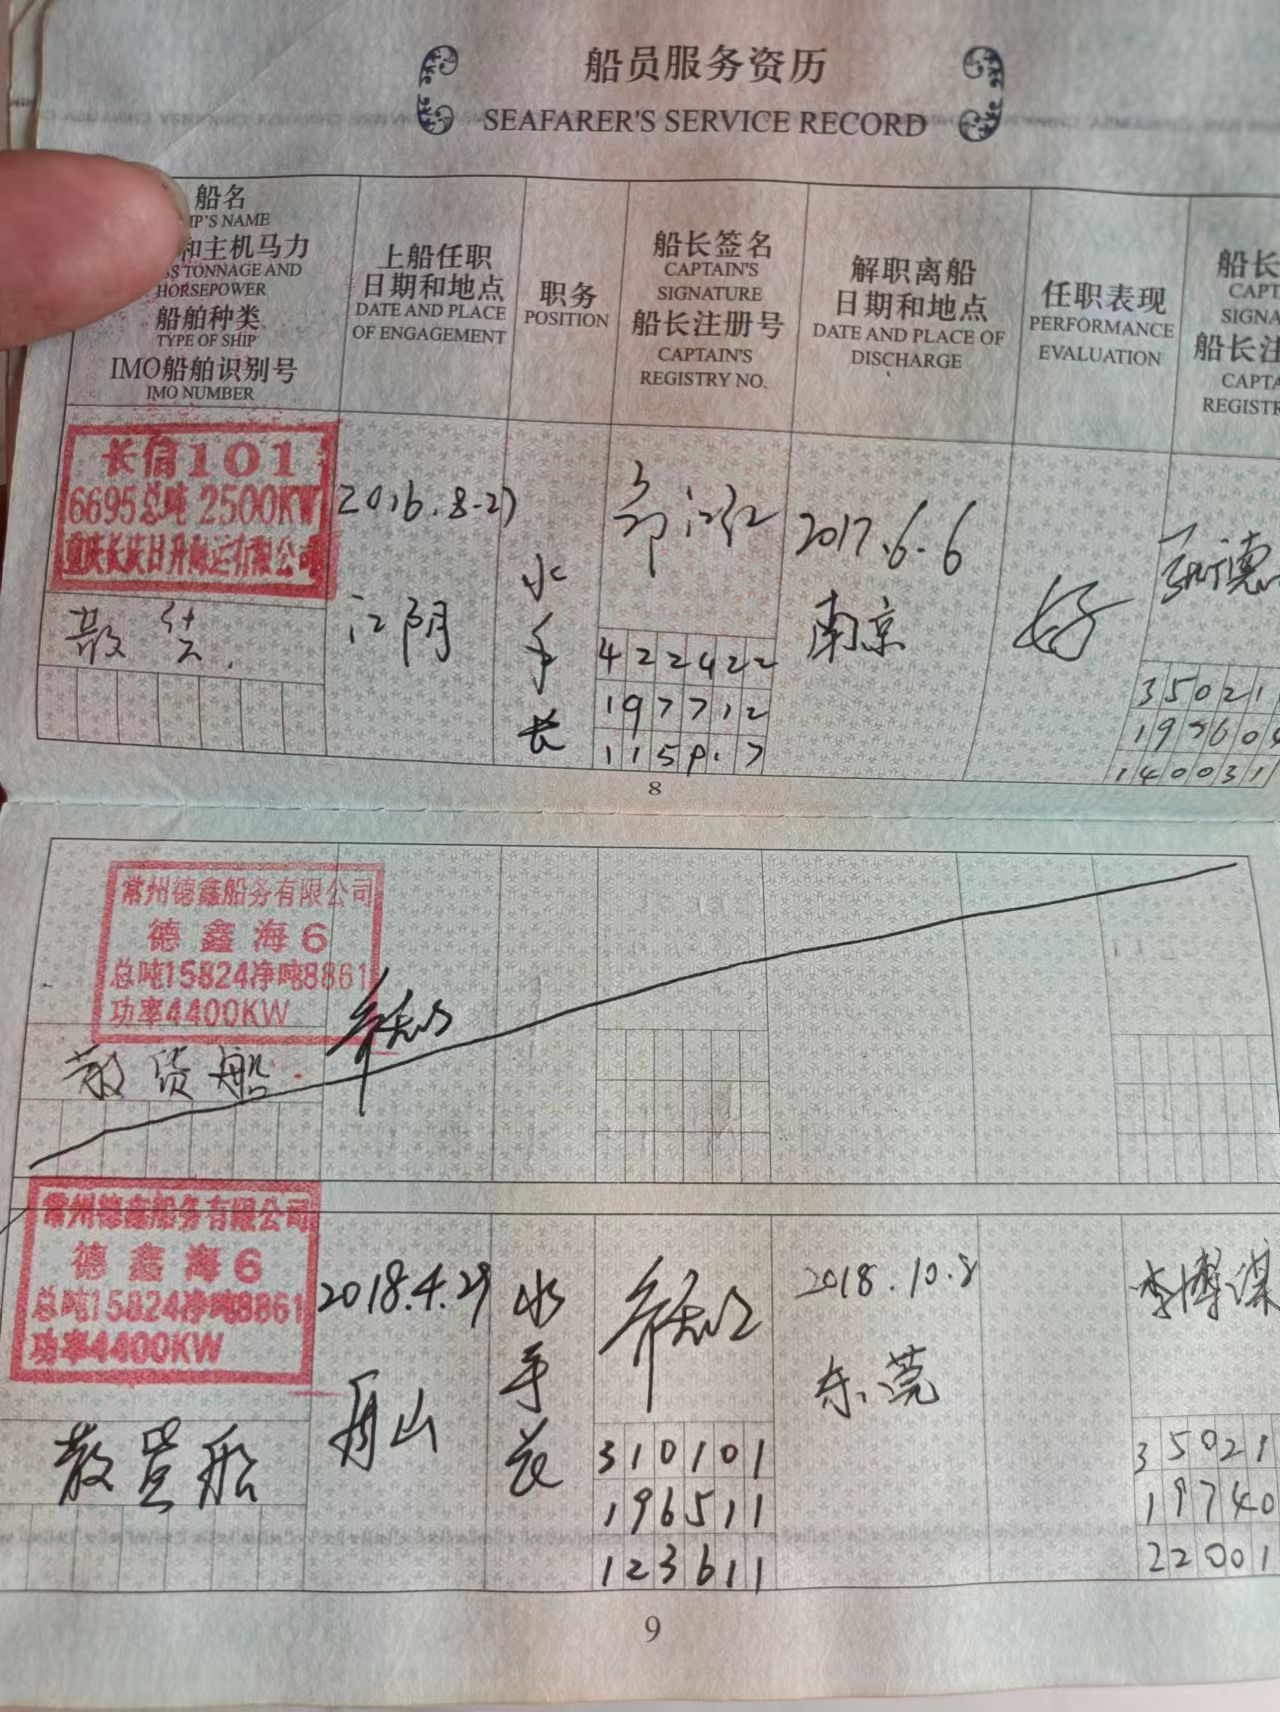 船员服务资历
SEAFARER'S SERVICE RECORD
船名
P'S NAME
和主机马力
S TONNAGE AND
HORSEPOWER
船舶种类
TYPE OF SHIP
IMO船舶识别号
IMO NUMBER
上船任职
日期和地点
DATE AND PLACE
OF ENGAGEMENT
职务
POSITION
船长签名
CAPTAIN'S
SIGNATURE
船长注册号
CAPTAIN'S
REGISTRY NO.
解职离船
日期和地点
DATE AND PLACE OF
DISCHARGE
任职表现
PERFORMANCE
EVALUATION
船长
CAPT
SIGNA
船长注
CAPTA
REGISTR
长信101
6695总吨 2500KW
重庆长庆日升航运有限公司
散货
2016.8.27
江阴
水手长
422422
197712
2017.6.6
南京
好
35021
195604
140031
8
常州德鑫船务有限公司
德鑫海6
总吨15824净吨8861
功率4400KW
散货船
常州德鑫船务有限公司
德鑫海6
总吨15824净吨8861
功率4400KW
散货船
2018.4.29
舟山
水手长
310101
196511
123611
2018.10.8
东莞
李博谋
35021
19740
22001
9